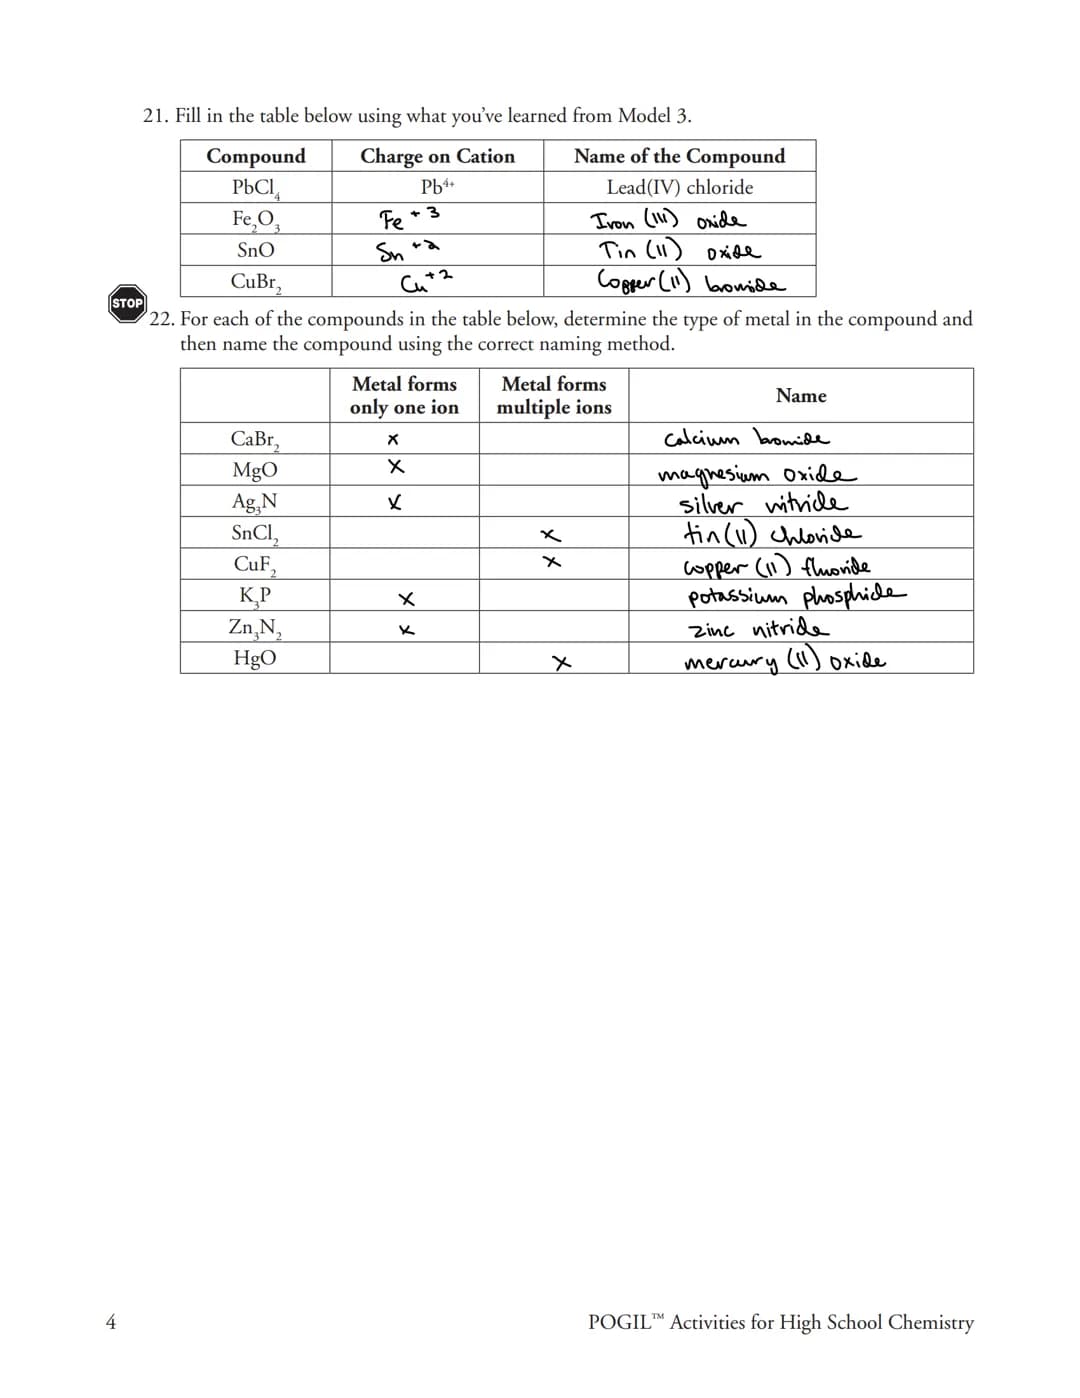 21. Fill in the table below using what you've learned from Model 3.
Compound Charge on Cation Name of the Compound
PbCl₄ Pb⁴⁺ Lead(IV) chloride
Fe₂O₃ Fe⁺³ Iron (III) oxide
SnO Sn⁺² Tin (II) oxide
CuBr₂ Cu⁺² Copper (II) bromide
STOP
22. For each of the compounds in the table below, determine the type of metal in the compound and
then name the compound using the correct naming method.
Metal forms only one ion Metal forms multiple ions Name
CaBr₂ x calcium bromide
MgO x magnesium oxide
Ag₃N x silver nitride
SnCl₂ x tin (II) chloride
CuF₂ x copper (II) fluoride
K₃P x potassium phosphide
Zn₃N₂ x zinc nitride
HgO x mercury (II) oxide
4 POGIL™ Activities for High School Chemistry